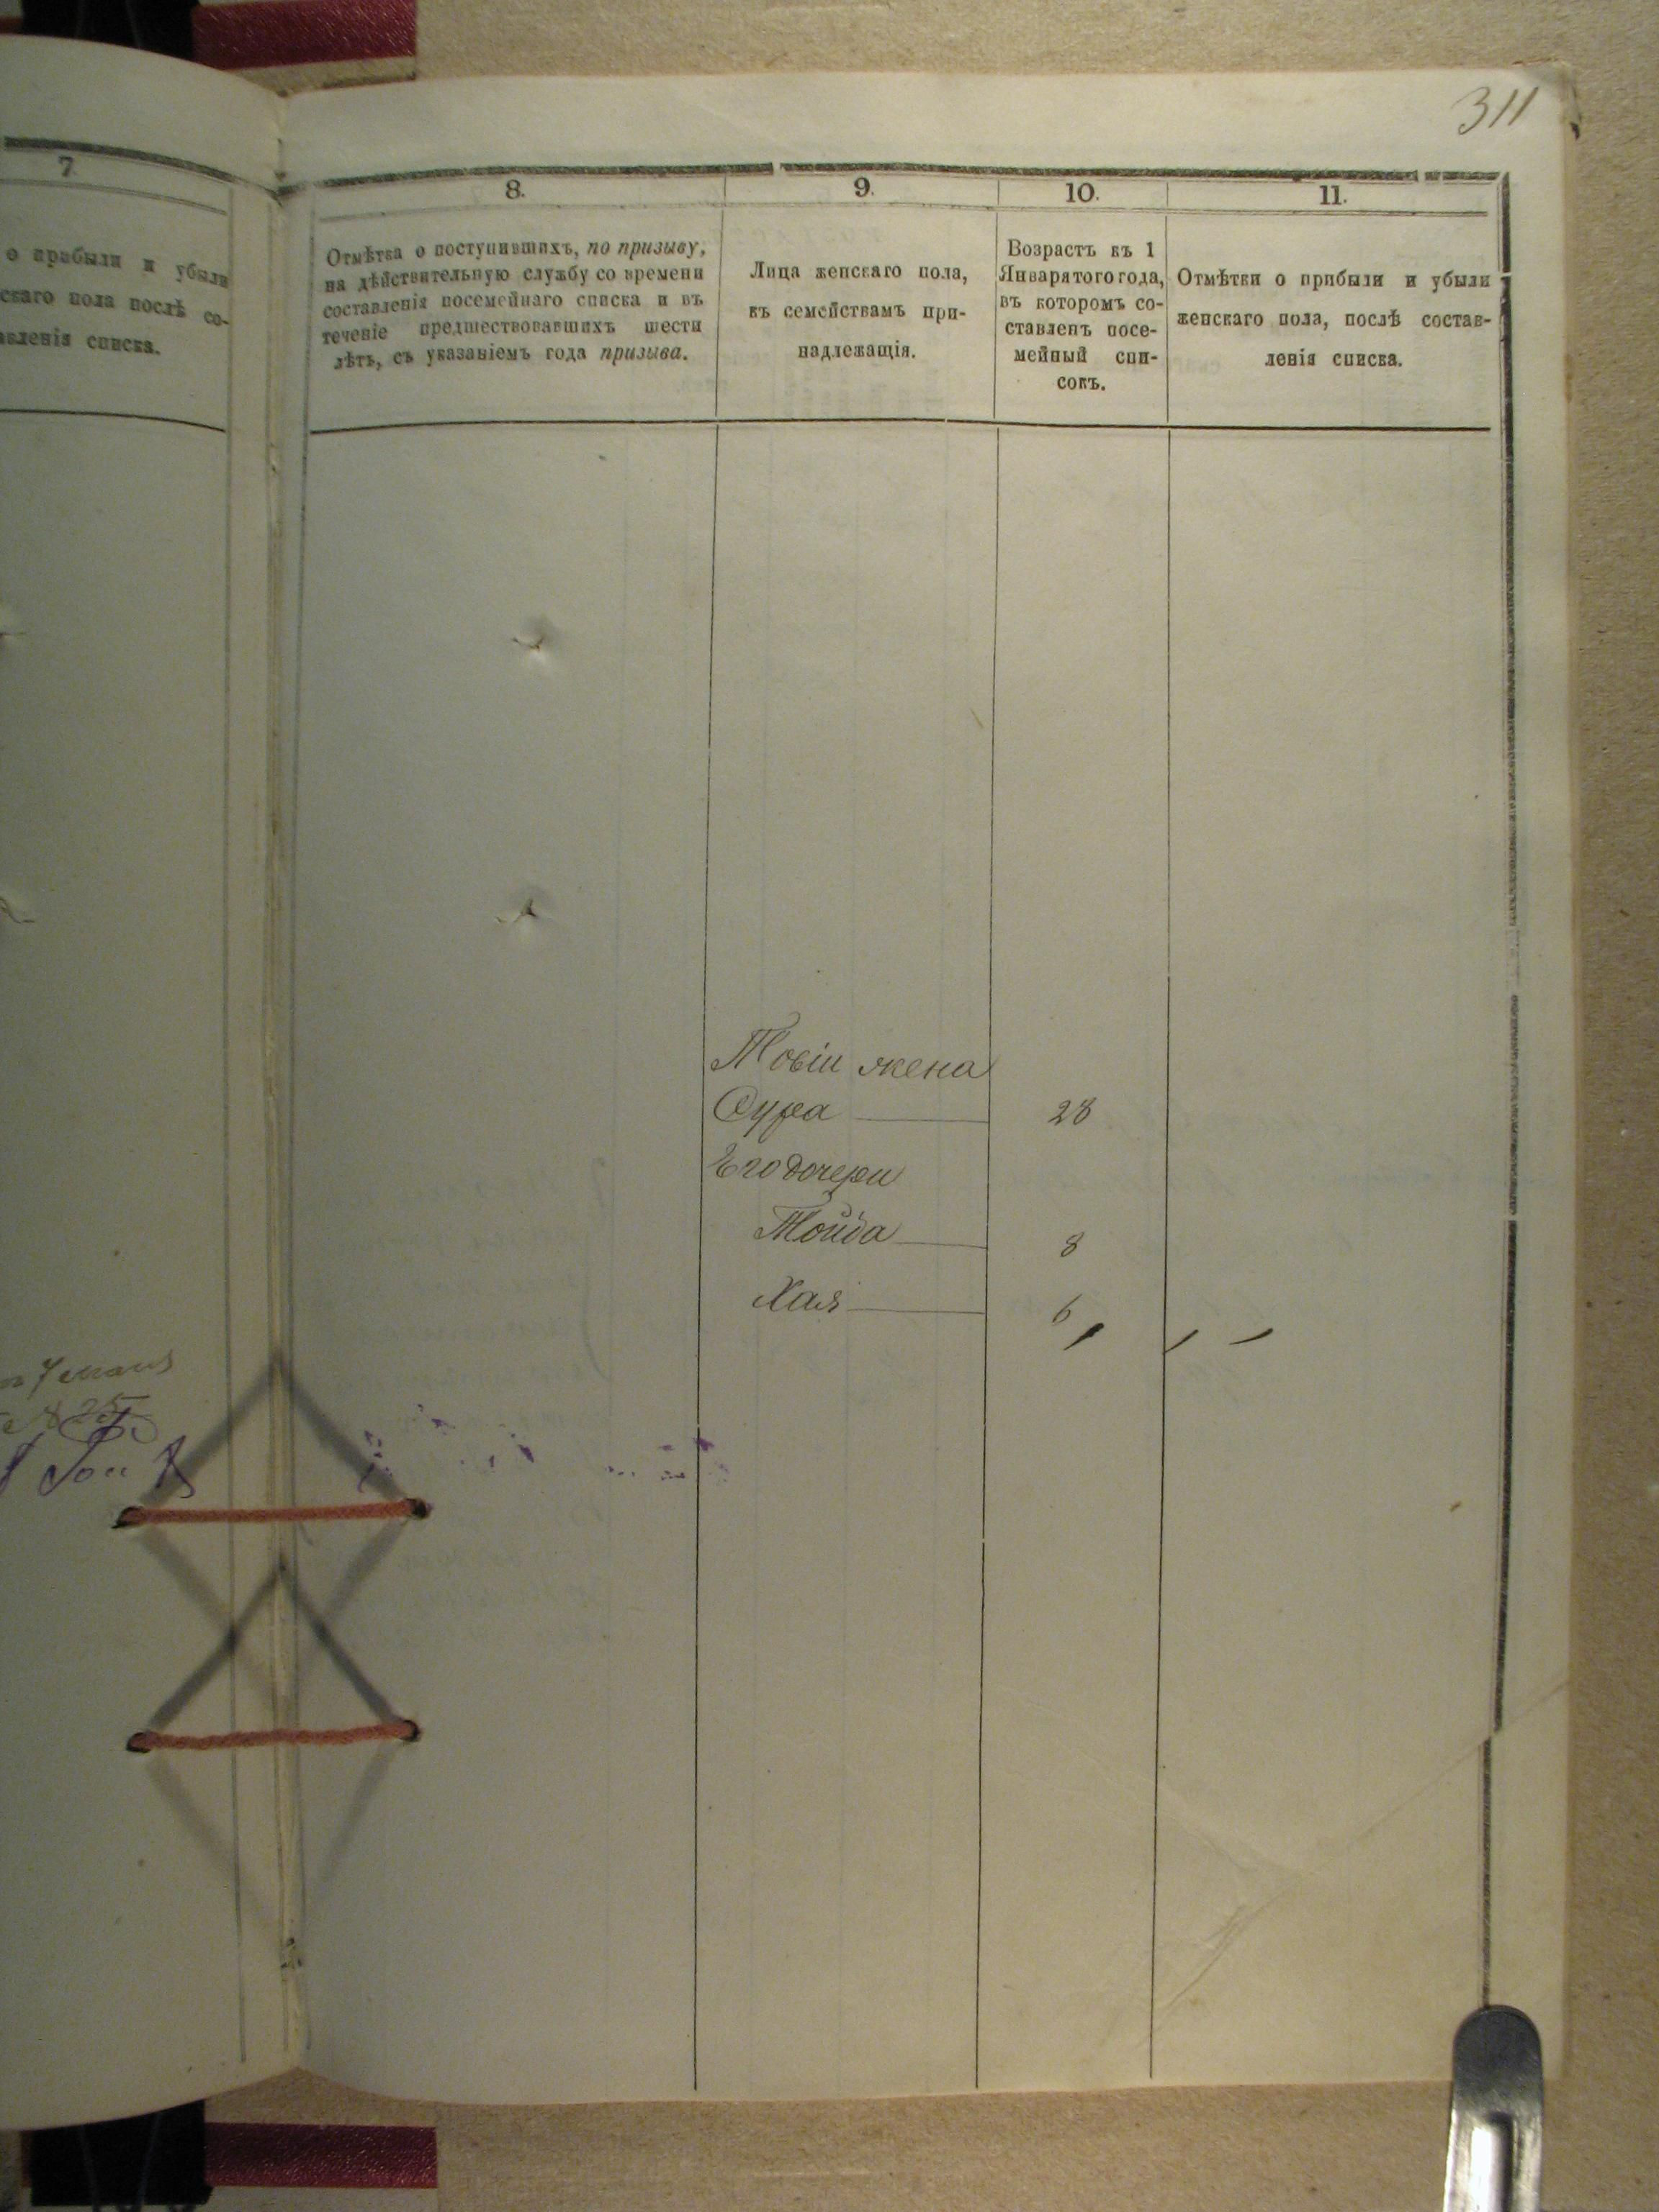 311
7
о прибыли и убыли
скаго пола послѣ со-
вленія списка.
7 мая
8.
Отмѣтка о поступившихъ, по призыву,
на дѣйствительную службу со времени
составленія посемейнаго списка и въ
теченіе предшествовавшихъ шести
лѣтъ, съ указаніемъ года призыва.
9.
Лица женскаго пола,
къ семействамъ при-
надлежащія.
10.
Возрастъ къ 1
Января того года,
въ которомъ со-
ставленъ посе-
мейный спи-
сокъ.
11.
Отмѣтки о прибыли и убыли
женскаго пола, послѣ состав-
ленія списка.
Товіи жена
Сура 28
Его дочери
Тойба 8
Хая 6